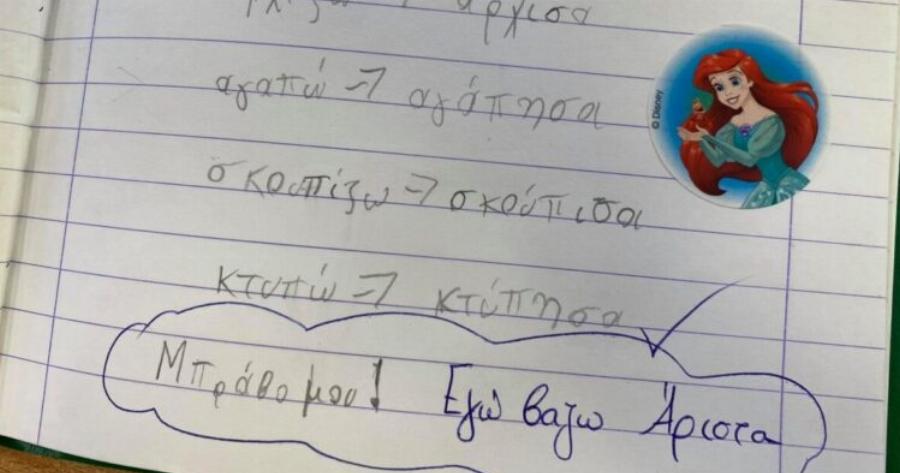 άρχισα
αγαπώ => αγάπησα
σκουπίζω => σκούπισα
κτυπώ => κτύπησα
Μπράβο μου! Εγώ βαζω Άριστα
© Disney